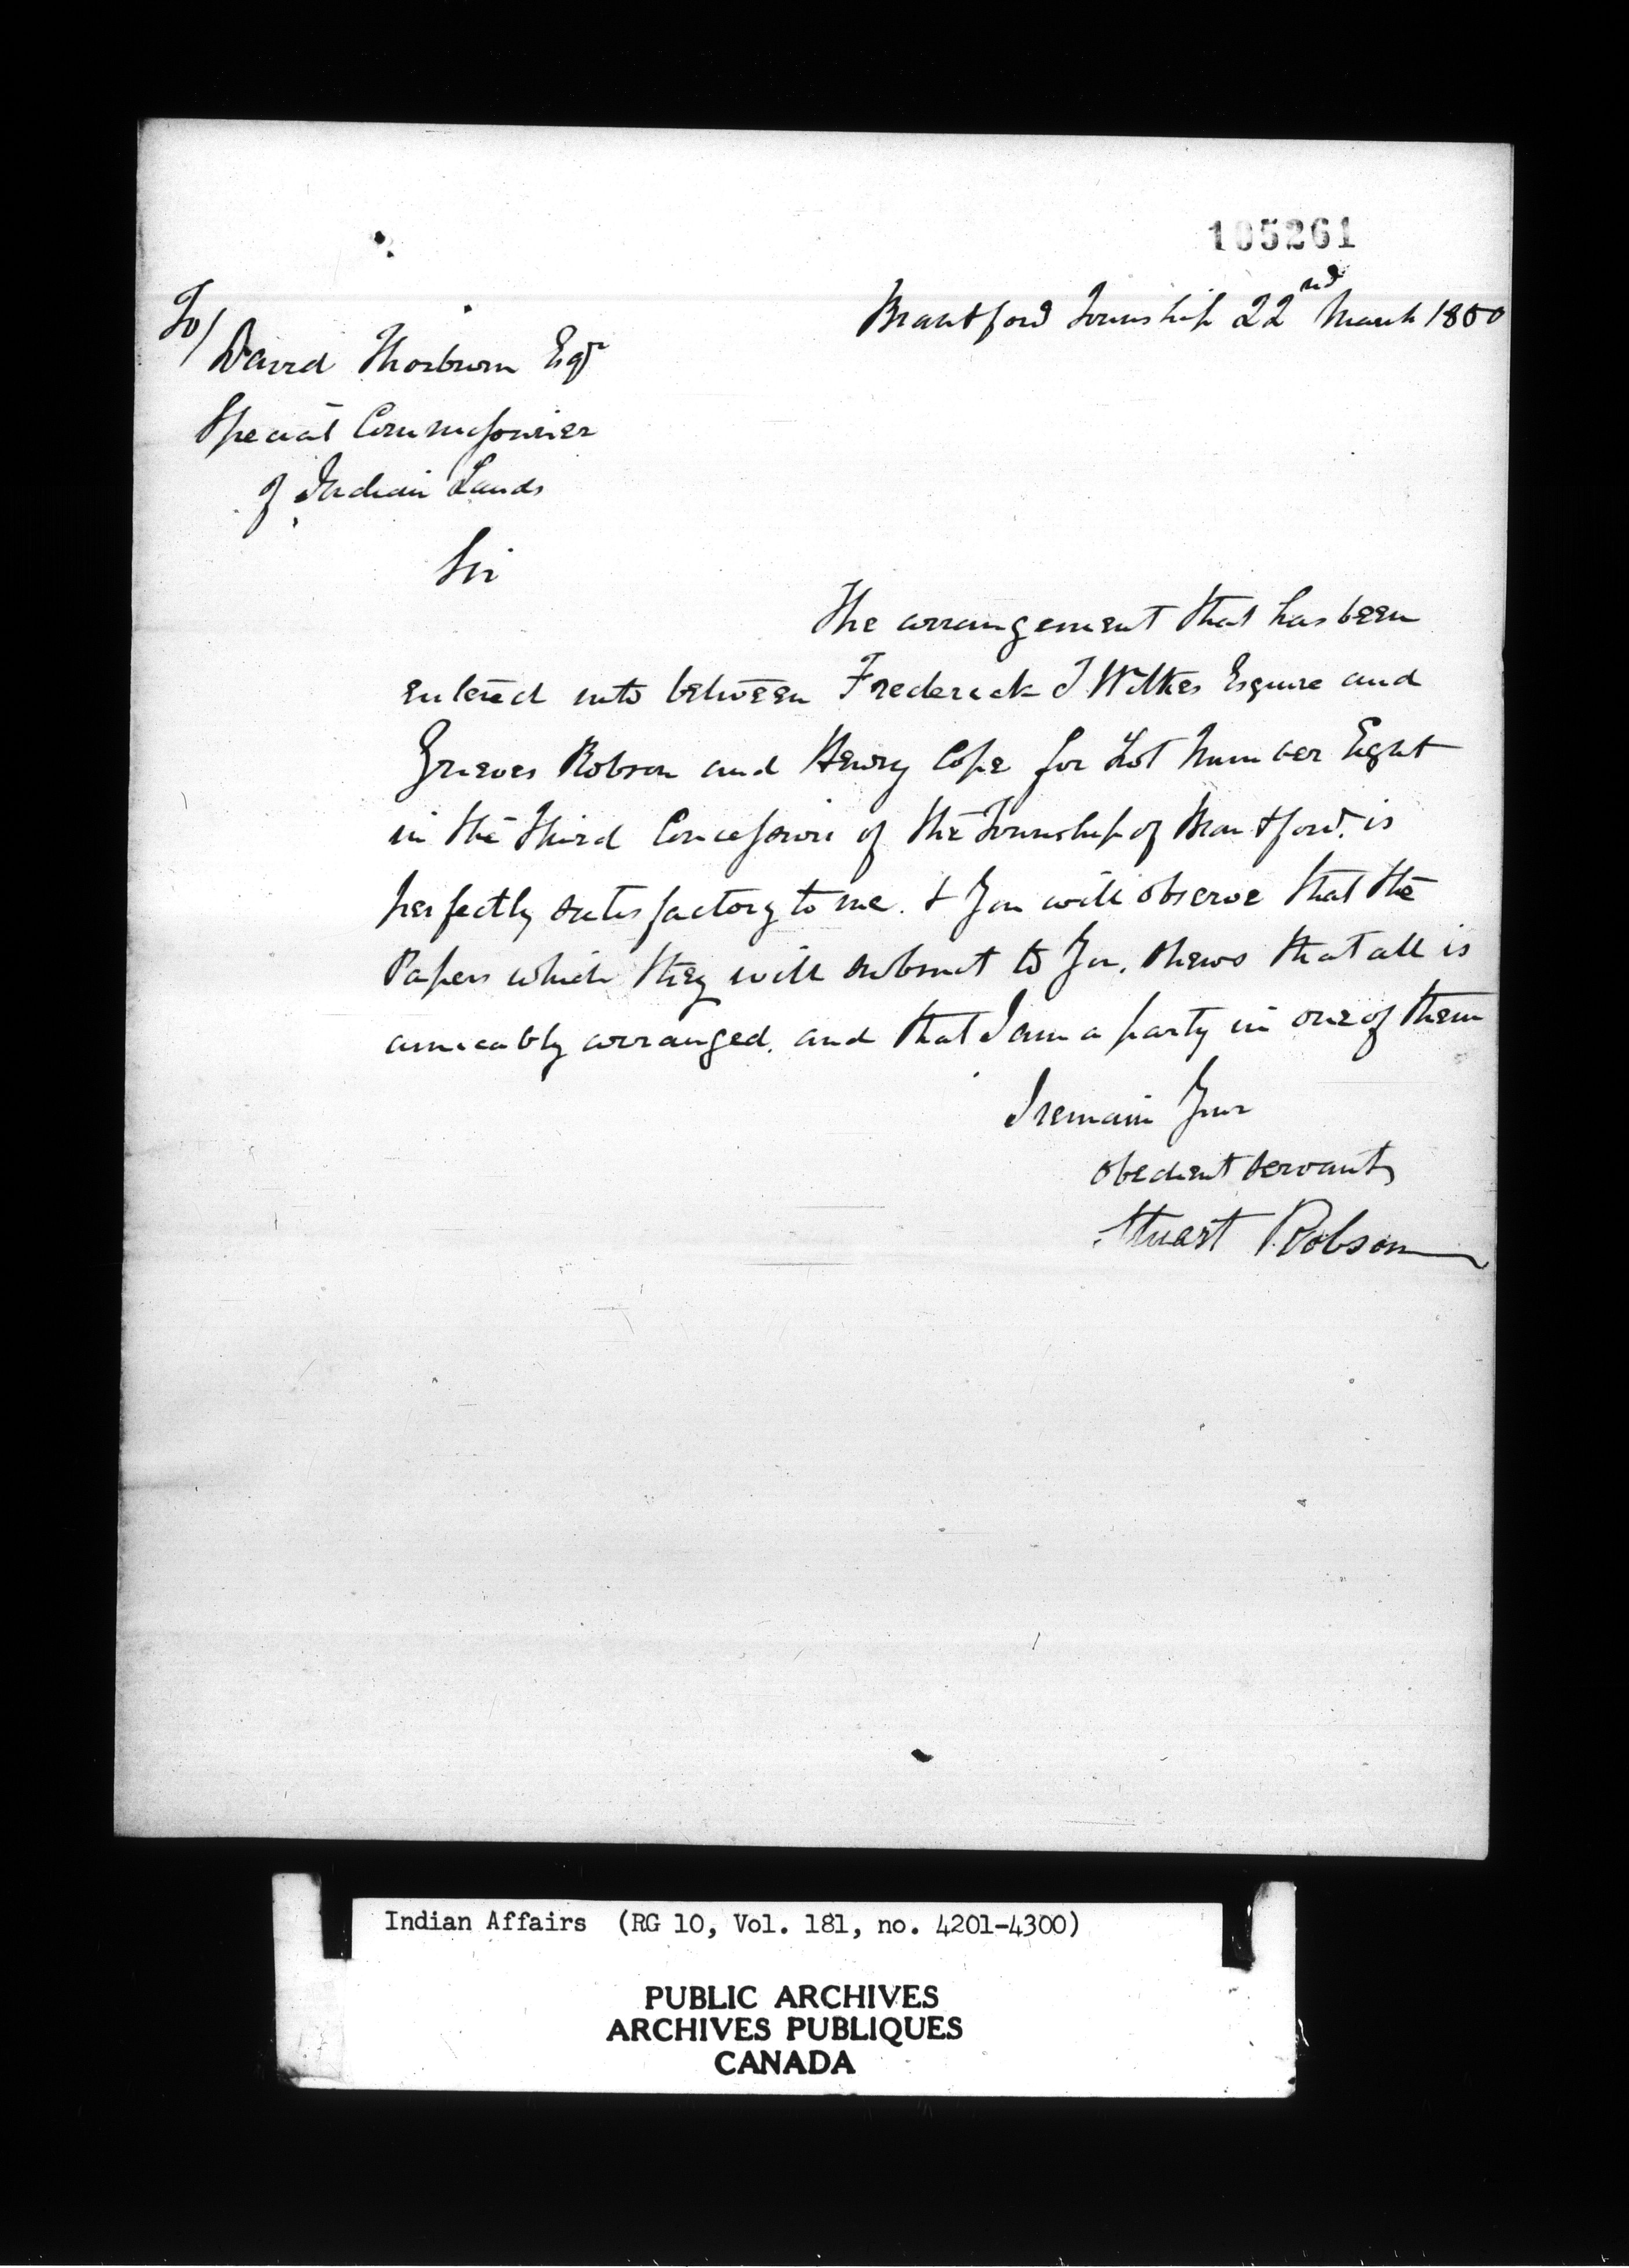 105261
Brantford Township 22nd March 1850
To/
David Thorburn Esqr
Special Commissioner
of Indian Lands
Sir
The arrangement that has been
entered into between Frederick T Wilkes Esquire and
Grieves Robson and Henry Cope for Lot Number Eight
in the Third Concession of the Township of Brantford. is
perfectly satisfactory to me. & You will observe that the
Papers which they will submit to You. shews that all is
amicably arranged. and that I am a party in one of them
I remain Your
obedient servant
Stuart Robson
Indian Affairs (RG 10, Vol. 181, no. 4201-4300)
PUBLIC ARCHIVES
ARCHIVES PUBLIQUES
CANADA